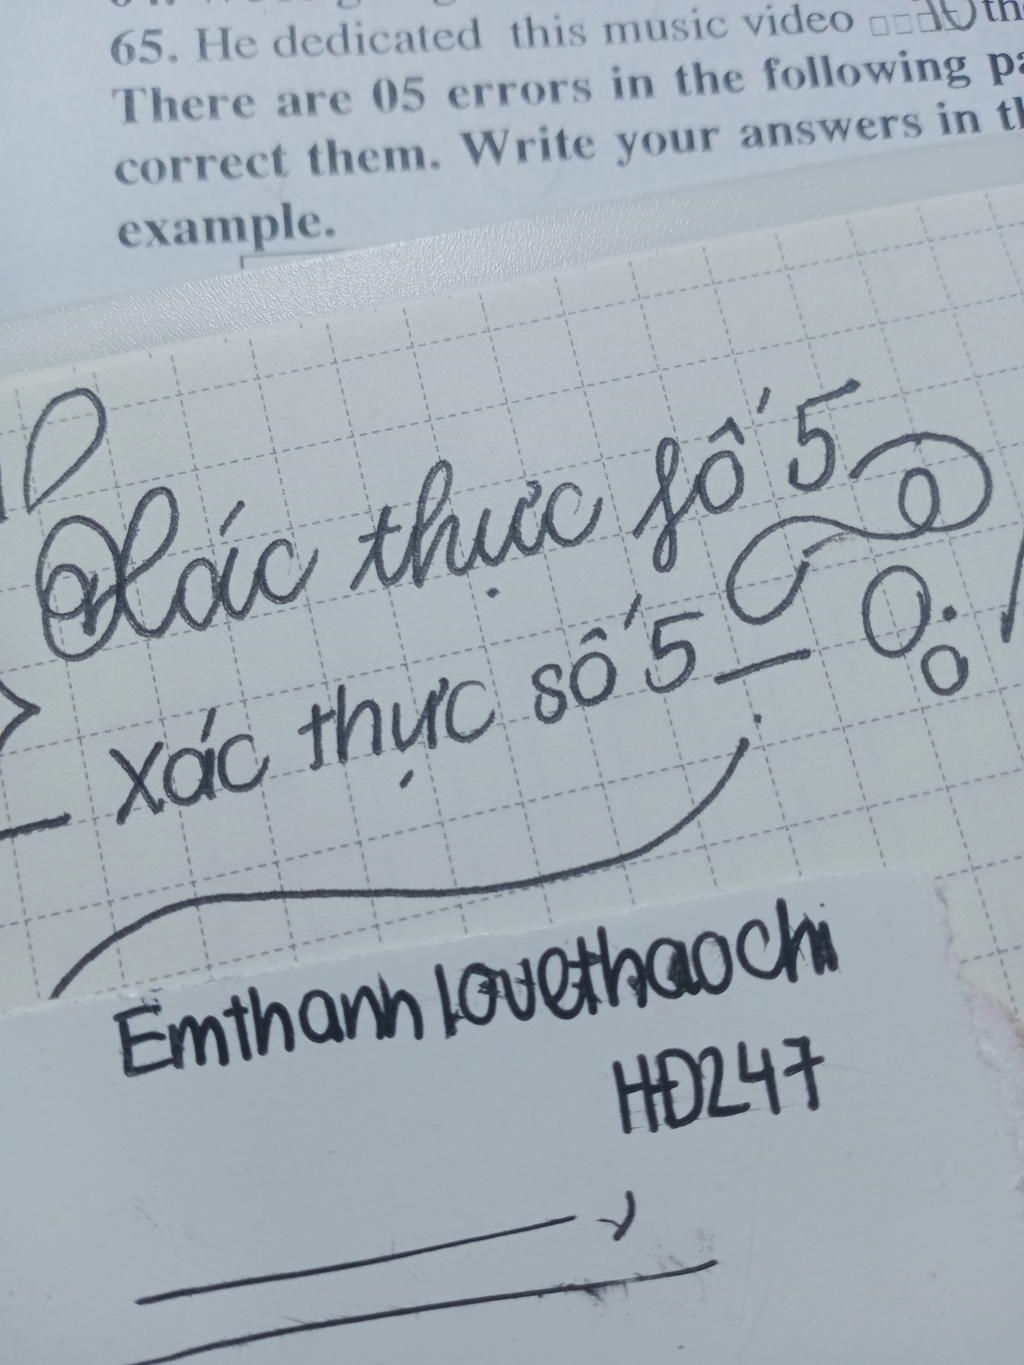 65. He dedicated this music video
There are 05 errors in the following
correct them. Write your answers in
example.
Xác thực số 5
xác thực số 5
Emthanh lovethaochi
HĐ247